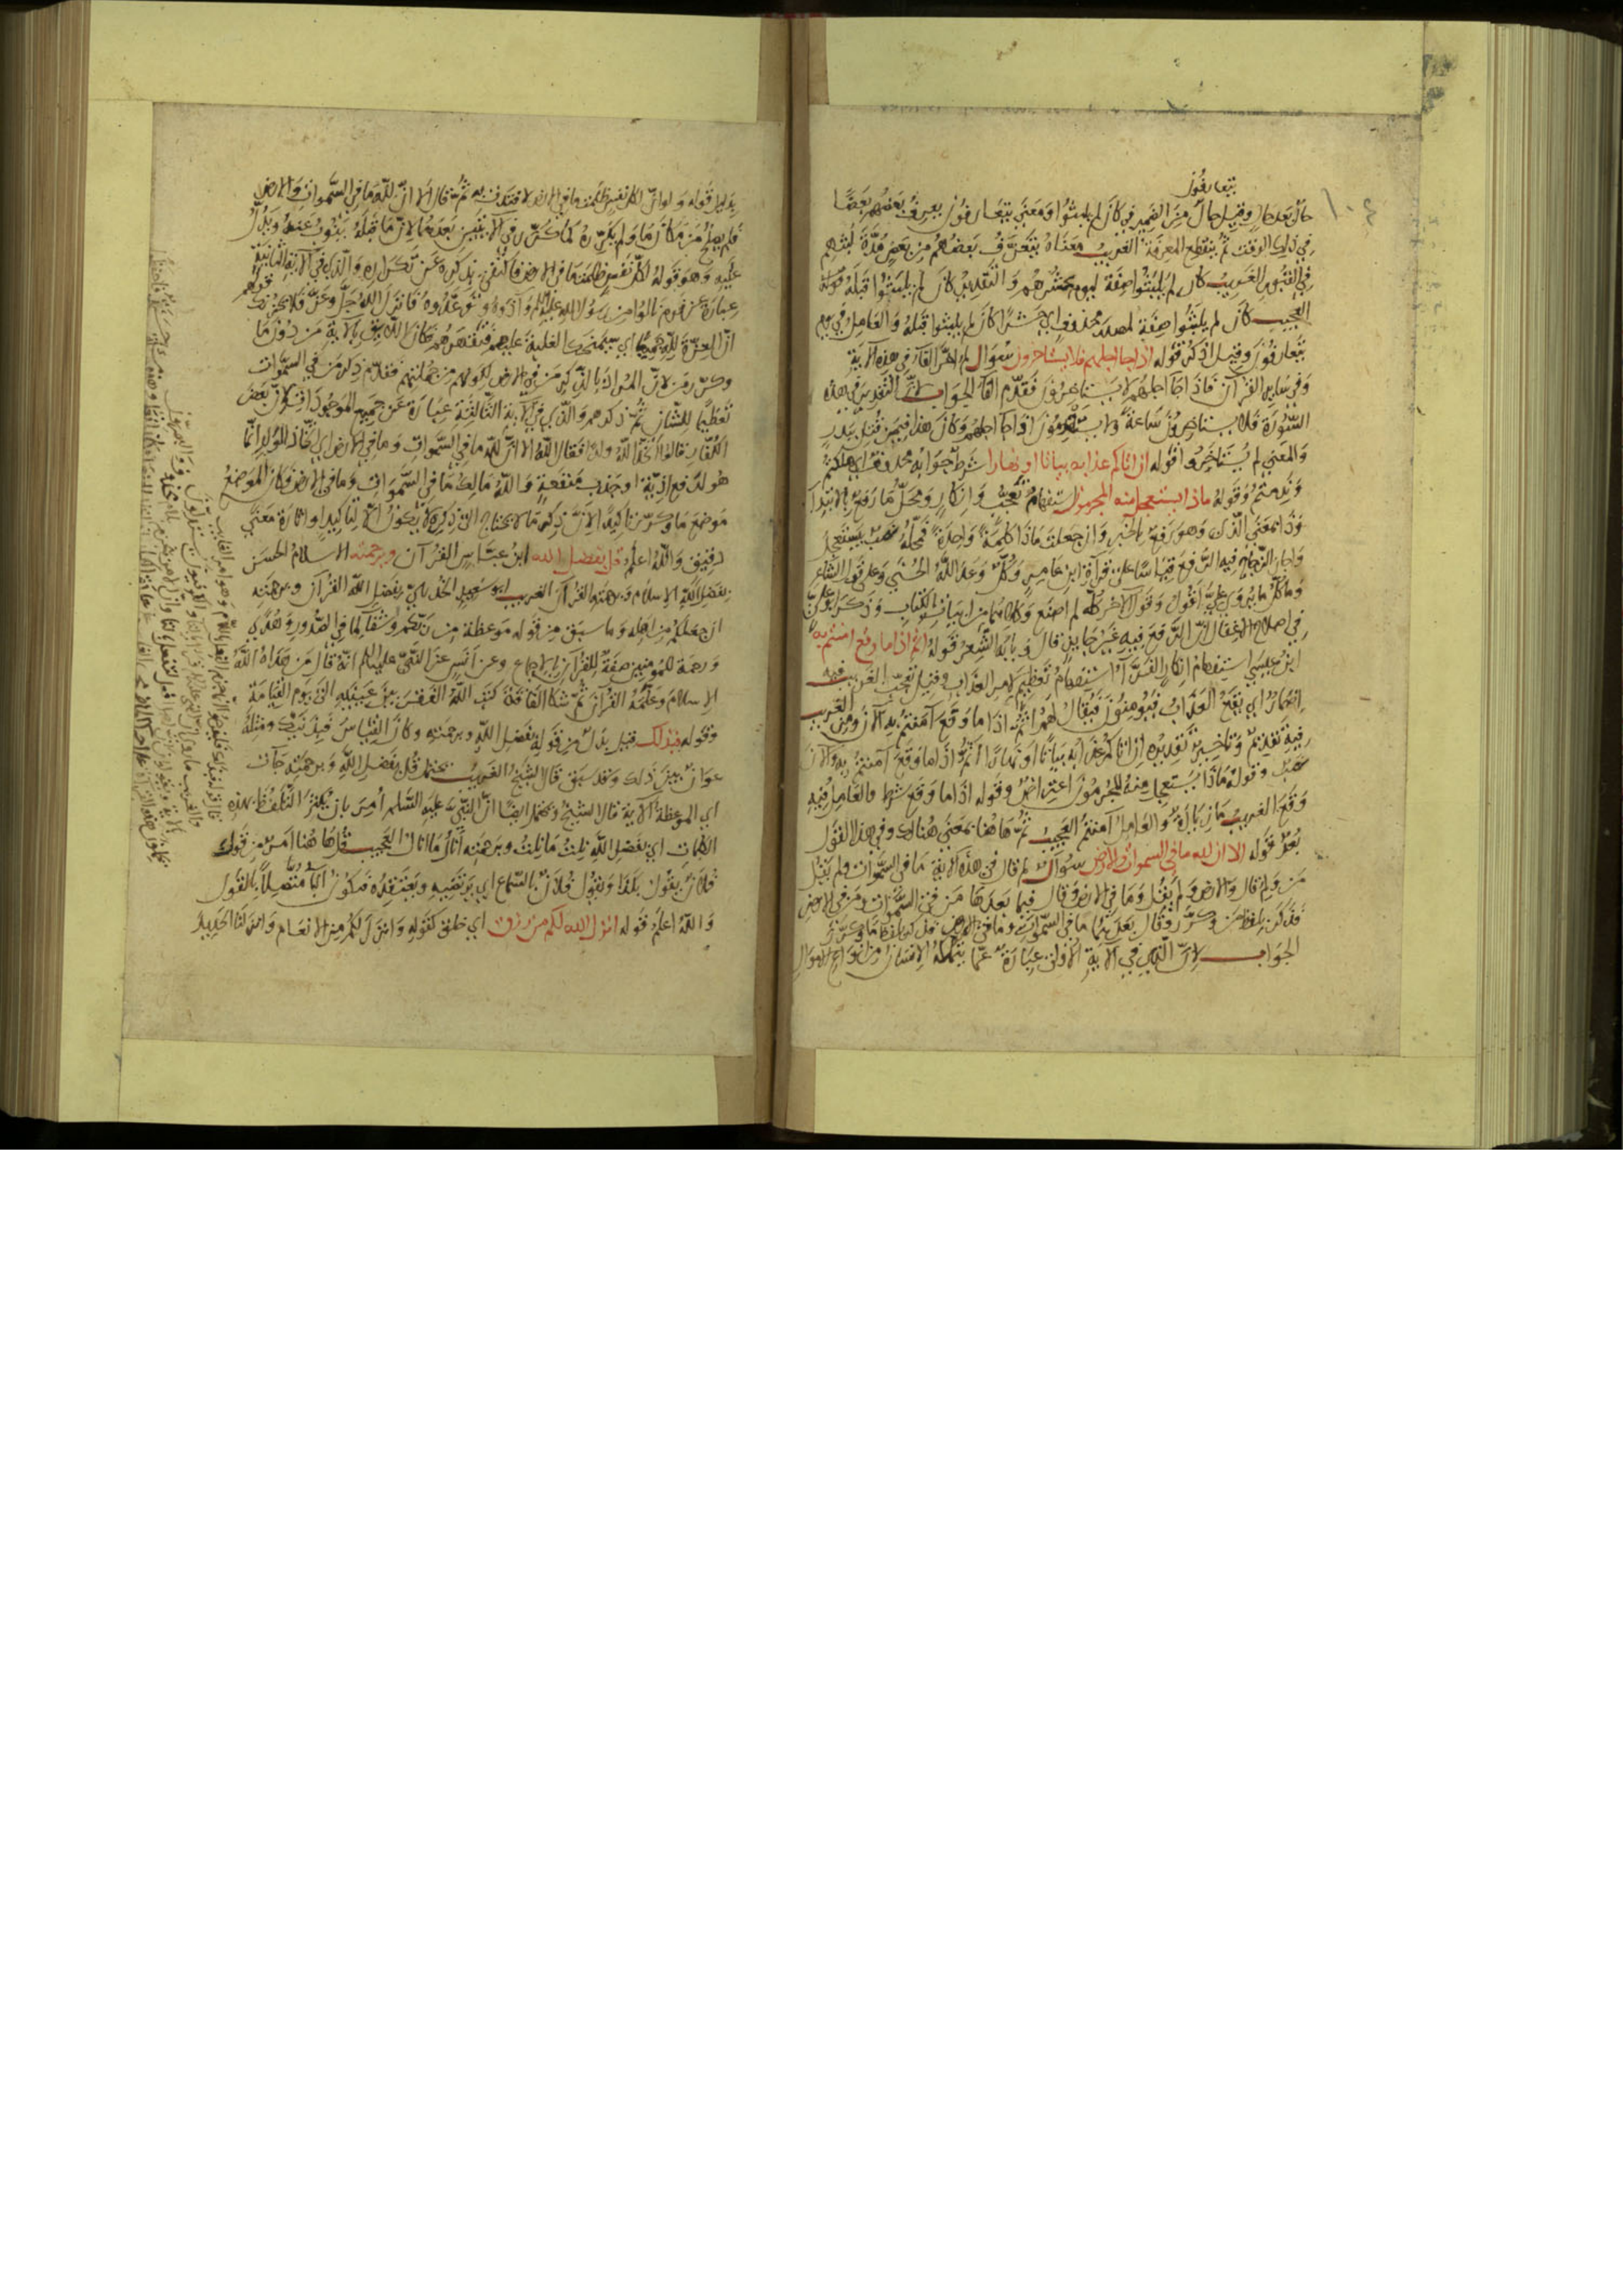 ١٠٤
يتعارفون
حال بعد حال وقيل حال من الضمير في كان لم يلبثوا ومعنى يتعارفون يعرف بعضهم بعضا
في ذلك الوقت ثم ينقطع المعرفة الغريب معناه يتعرف بعضهم من بعض مدة لبثهم
في القبور الغريب كان لم يلبثوا صفة ليوم يحشرهم والتقدير كان لم يلبثوا قبله قوله
العجيب كان لم يلبثوا صفة لمصدر محذوف اي حشرا كان لم يلبثوا قبله والعامل في يوم
يتعارفون وقيل اذكر قوله اذا جا اجلهم فلا يستاخرون سؤال لم اخر الفآ في هذه الآية
وفي ساير القرآن فاذا جآ اجلهم لا يستاخرون فقدم الفآ الجواب لان التقدير في هذه
السورة فلا يستاخرون ساعة ولا يستقدمون اذا جآ اجلهم وكان هذا فيمن قتل ببدر
والمعنى لم يستاخروا قوله ان اتاكم عذابه بياتا او نهارا شرط جوابه محذوف اي هلكتم
وندمتم وقوله ماذا يستعجل منه المجرمون استفهام تعجب وانكار ومحل ما رفع بالابتدآ
وذا بمعنى الذي وهو رفع بالخبر وان جعلت ماذا كلمة واحدة فمحله نصب بيستعجل
واجاز الزجاج فيه الرفع قياسا على قرآة ابن عامر وكل وعد الله الحسنى وعلى قول الشاعر
وما كل ما يروي علي اقول وقول الآخر كله لم اصنع وكلاهما من ابيات الكتاب وذكر ابو علي
في اصلاح الاغفال ان الرفع فيه غير جايز قال وبابه الشعر قوله اثم اذا ما وقع امنتم به
ابن عيسى استفهام انكار الفرآ استفهام تعظيم لامر العذاب وقيل تعجب الغريب فيه
اضمار اي يقع العذاب فيؤمنون فيقال لهم اثم اذا ما وقع آمنتم به الآن ومن الغريب
فيه تقديم وتاخير تقديره ان اتاكم عذابه بياتا او نهارا اثم اذا ما وقع آمنتم به والآن
وقوله ماذا يستعجل منه المجرمون اعتراض وقوله اذا ما وقع شرط والعامل فيه
وقع الغريب ما زايدة والعامل آمنتم العجيب ثم هاهنا بمعنى هنالك وفي هذا القول
بعد قوله الا ان لله ما في السموات والارض سوال لم قال في هذه الاية ما في السموات ولم يقل
من ولم قال والارض ولم يقل وما في الارض وقال فيما بعدها من في السموات ومن في الارض
فذكر بلفظ من وكرر وقال بعدهما ما في السموات وما في الارض فذكر بلفظ ما وكرر
الجواب لان الذي في الاية الاولى عبارة عما يتملكه الانسان من انواع الاموال
بدليل قوله ولو ان لكل نفس ظلمت ما في الارض لافتدت به ثم قال الا ان لله ما في السموات والارض
فلم يصلح من مكان ما ولم يكرره كما كرر في الآيتين بعدها لان ما قبله ينوب عنه ويدل
عليه وهو قوله لكل نفس ظلمت ما في الارض فاكتفى بذكره عن تكراره والذي في الآية الثانية
عبارة عن قوم نالوا من رسول الله عليه السلام واذوه وتوعدوه فانزل الله جل وعز ولا يحزنك قولهم
ان العزة لله جميعا اي سيمنحك الغلبة عليهم فتقهرهم فكان اللايق بالآية من دون ما
وكرر من لان المراد بالذكر من في الارض لكونهم من جملتهم فقدم ذكر من في السموات
تعظيما للشان ثم ذكرهم والذي في الآية الثالثة عبارة عن جميع الموجودات لان بعض
الكفار قالوا اتخذ الله ولدا فقال الله الا ان لله ما في السموات وما في الارض اي اتخاذ الولد انما
هو لدفع اذية او جذب منفعة والله مالك ما في السموات وما في الارض فكان الموضع
موضع ما وكرر تاكيدا لان ذكر ما لا يحتاج الى ذكره لا يكون الا لتاكيد او اثارة معنى
دقيق والله اعلم قل بفضل الله ابن عباس القرآن وبرحمته الاسلام الحسن
بفضل الله الاسلام وبرحمته القرآن الغريب ابو سعيد الخدري بفضل الله القرآن وبرحمته
ان جعلكم من اهله وما سبق من قوله موعظة من ربكم وشفآ لما في الصدور وهدى
ورحمة للمومنين صفة للقرآن بالاجماع وعن انس عن النبي عليه السلام انه قال من هداه الله
الاسلام وعلمه القرآن ثم شكا الفاقة كتب الله الفقر بين عينيه الى يوم القيامة
وقوله فبذلك قيل بدل من قوله بفضل الله وبرحمته وكان القياس فبذينك ومثله
عوان بين ذلك وقد سبق قال الشيخ الغريب يحتمل قل بفضل الله وبرحمته جآت
اي الموعظة الآية قال الشيخ ويحتمل ايضا ان النبي عليه السلم امر بان يكثر التلفظ بهذه
الكلمات اي بفضل الله نلت ما نلت وبرحمته انال ما انال العجيب قل هاهنا امر من قولك
فلان يقول بكذا ويقول فلان بالسماع اي يرتضيه ويعتقده فيكون البآ متصلا بالقول
والله اعلم قوله انزل الله لكم من رزق اي خلق كقوله وانزل لكم من الانعام وانزلنا الحديد